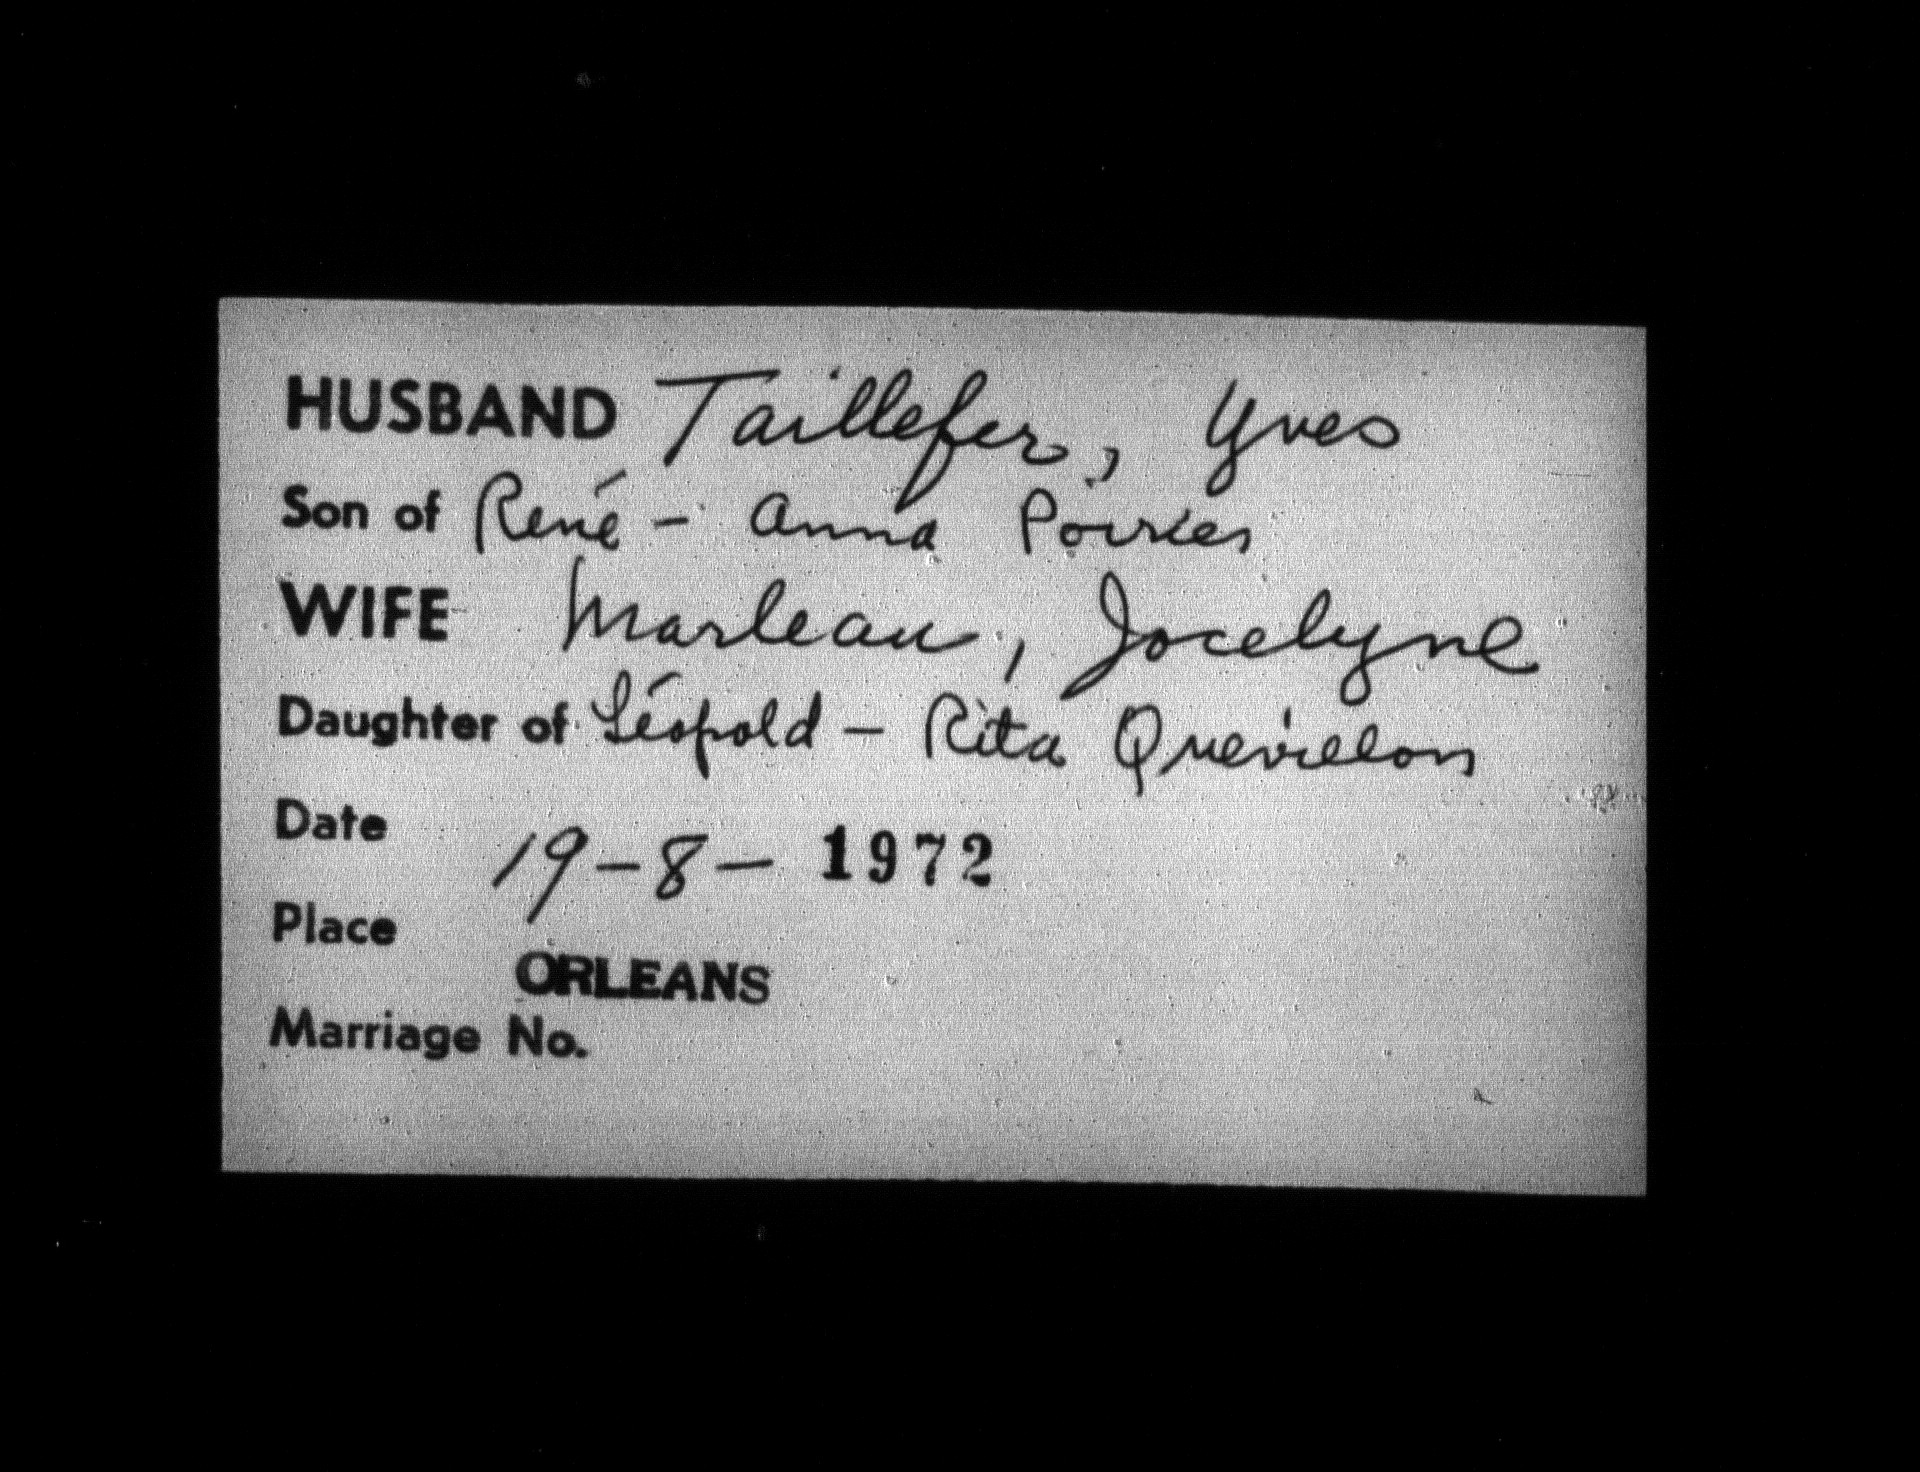 HUSBAND Taillefer, Yves
Son of René - Anna Poirier
WIFE Marleau, Jocelyne
Daughter of Léopold - Rita Quevillon
Date 19-8-1972
Place ORLEANS
Marriage No.